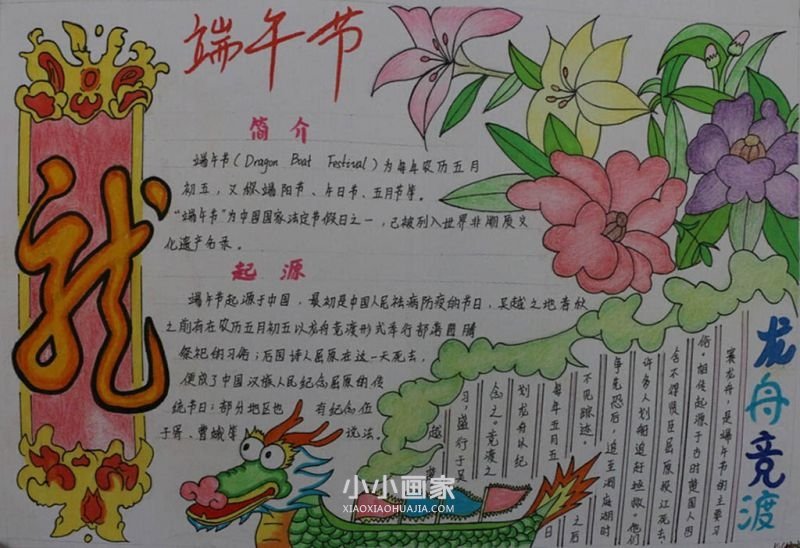 龙
端午节
简介
端午节(Dragon Boat Festival)为每年农历五月
初五,又称端阳节、午日节、五月节等。
"端午节"为中国国家法定节假日之一,已被列入世界非潮质文
化遗产名录。
起源
端午节起源于中国,最初是中国人民祛病防疫的节日,吴越之地春秋
之前有在农历五月初五以龙舟竞渡形式举行部落图腾
祭祀的习俗;后因诗人屈原在这一天死去,
便成了中国汉族人民纪念屈原的传
统节日;部分地区也 有纪念伍
子胥、曹娥等 说法。
龙舟竞渡
赛龙舟,是端午节的主要习
俗。相传起源于古时楚国人因
舍不得贤臣屈原投江死去,
许多人划船追赶拯救。他们
争先恐后,追至洞庭湖时
不见踪迹。之后
每年五月五日
划龙舟以纪
念之。竞渡之
习,盛行于吴
越
小小画家
XIAOXIAOHUAJIA.COM